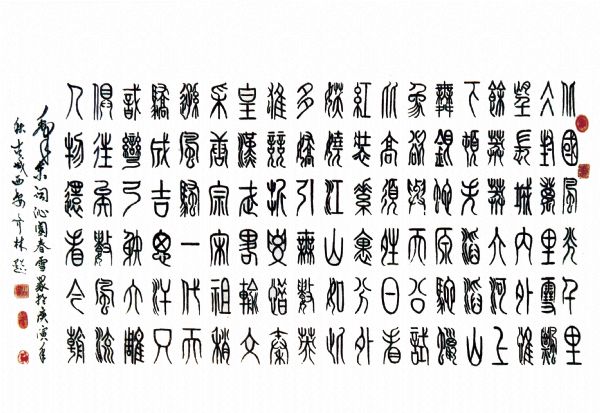 北國風光千里
冰封萬里雪飄
望長城內外惟
餘莽莽大河上
下頓失滔滔山
舞銀蛇原馳蠟
象欲與天公試
比高須晴日看
紅裝素裹分外
妖嬈江山如此
多嬌引無數英
雄競折腰惜秦
皇漢武略輸文
采唐宗宋祖稍
遜風騷一代天
驕成吉思汗只
識彎弓射大雕
俱往矣數風流
人物還看今朝
毛澤東詞沁園春雪歲於庚寅年
秋書於西安介林題